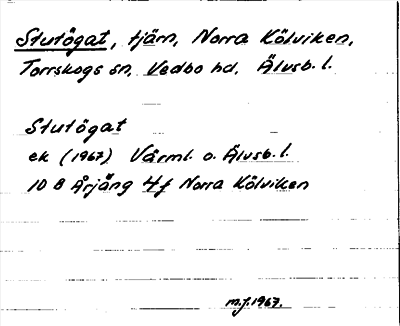 Stutögat, tjärn, Norra Kölviken,
Torrskogs sn, Vedbo hd, Älvsb. l.
Stutögat
ek (1967) Värml. o. Älvsb. l.
10 B Årjäng 4f Norra Kölviken
m.f. 1967.